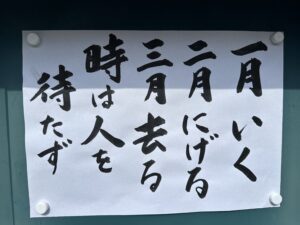 一月いく
二月にげる
三月去る
時は人を
待たず